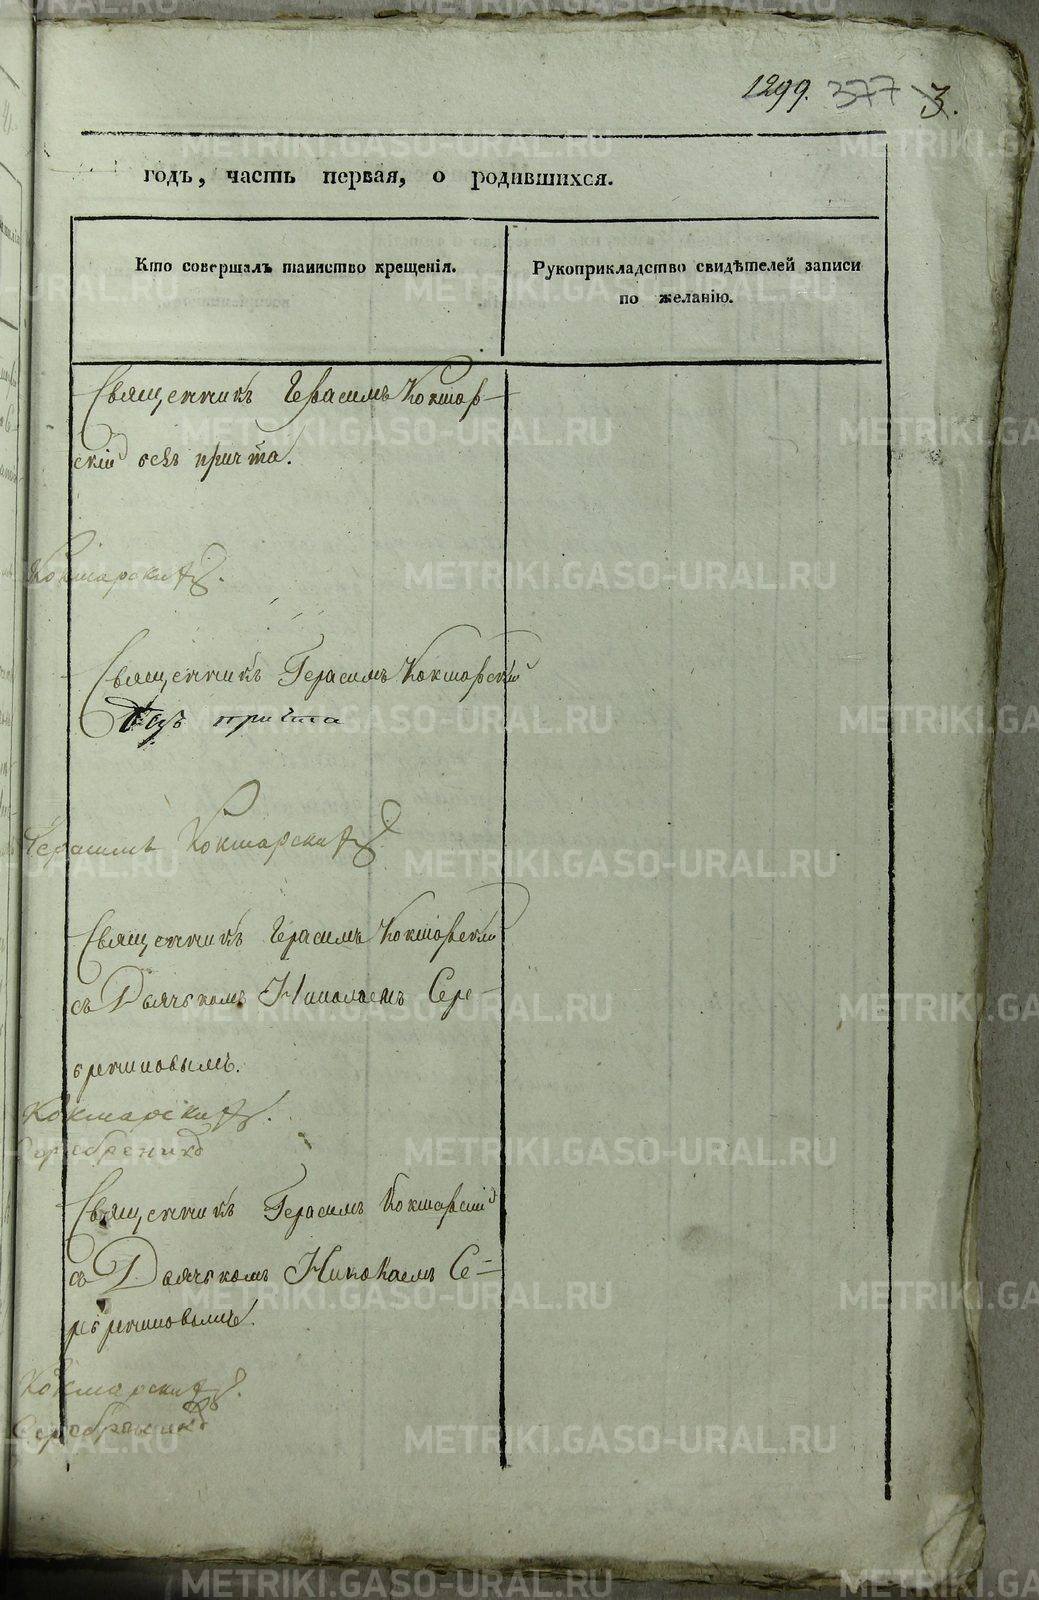 1299. 377 3.
годъ, часть первая, о родившихся.
Кто совершалъ таинство крещенія.
Рукоприкладство свидѣтелей записи
по желанію.
Священникъ Герасимъ Кокшар-
скій безъ причта.
Кокшарскій.
Священникъ Герасимъ Кокшарскій
безъ причта
Герасимъ Кокшарскій.
Священникъ Герасимъ Кокшарскій
съ Дьячкомъ Николаемъ Сере-
бренниковымъ.
Кокшарскій.
Священникъ Герасимъ Кокшарскій
съ Дьячкомъ Николаемъ Се-
ребрениковымъ.
Кокшарскій.
METRIKI.GASO-URAL.RU